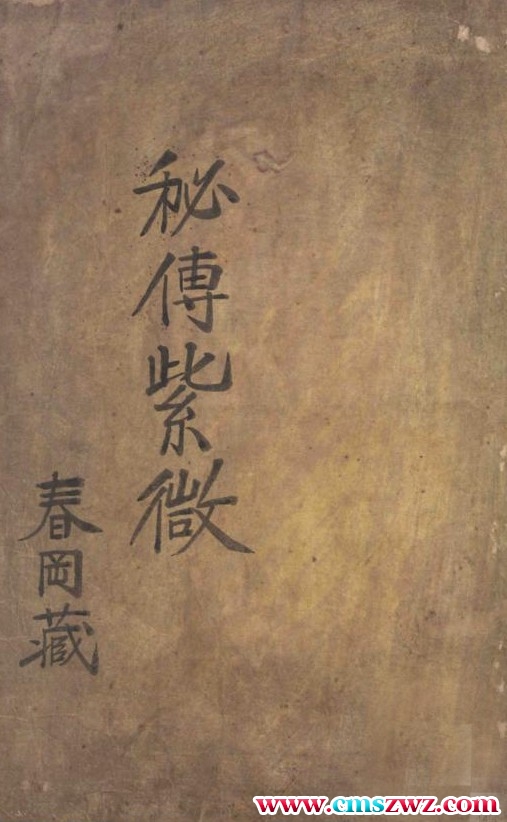 秘傳紫微
春岡藏
www.cmszwz.com